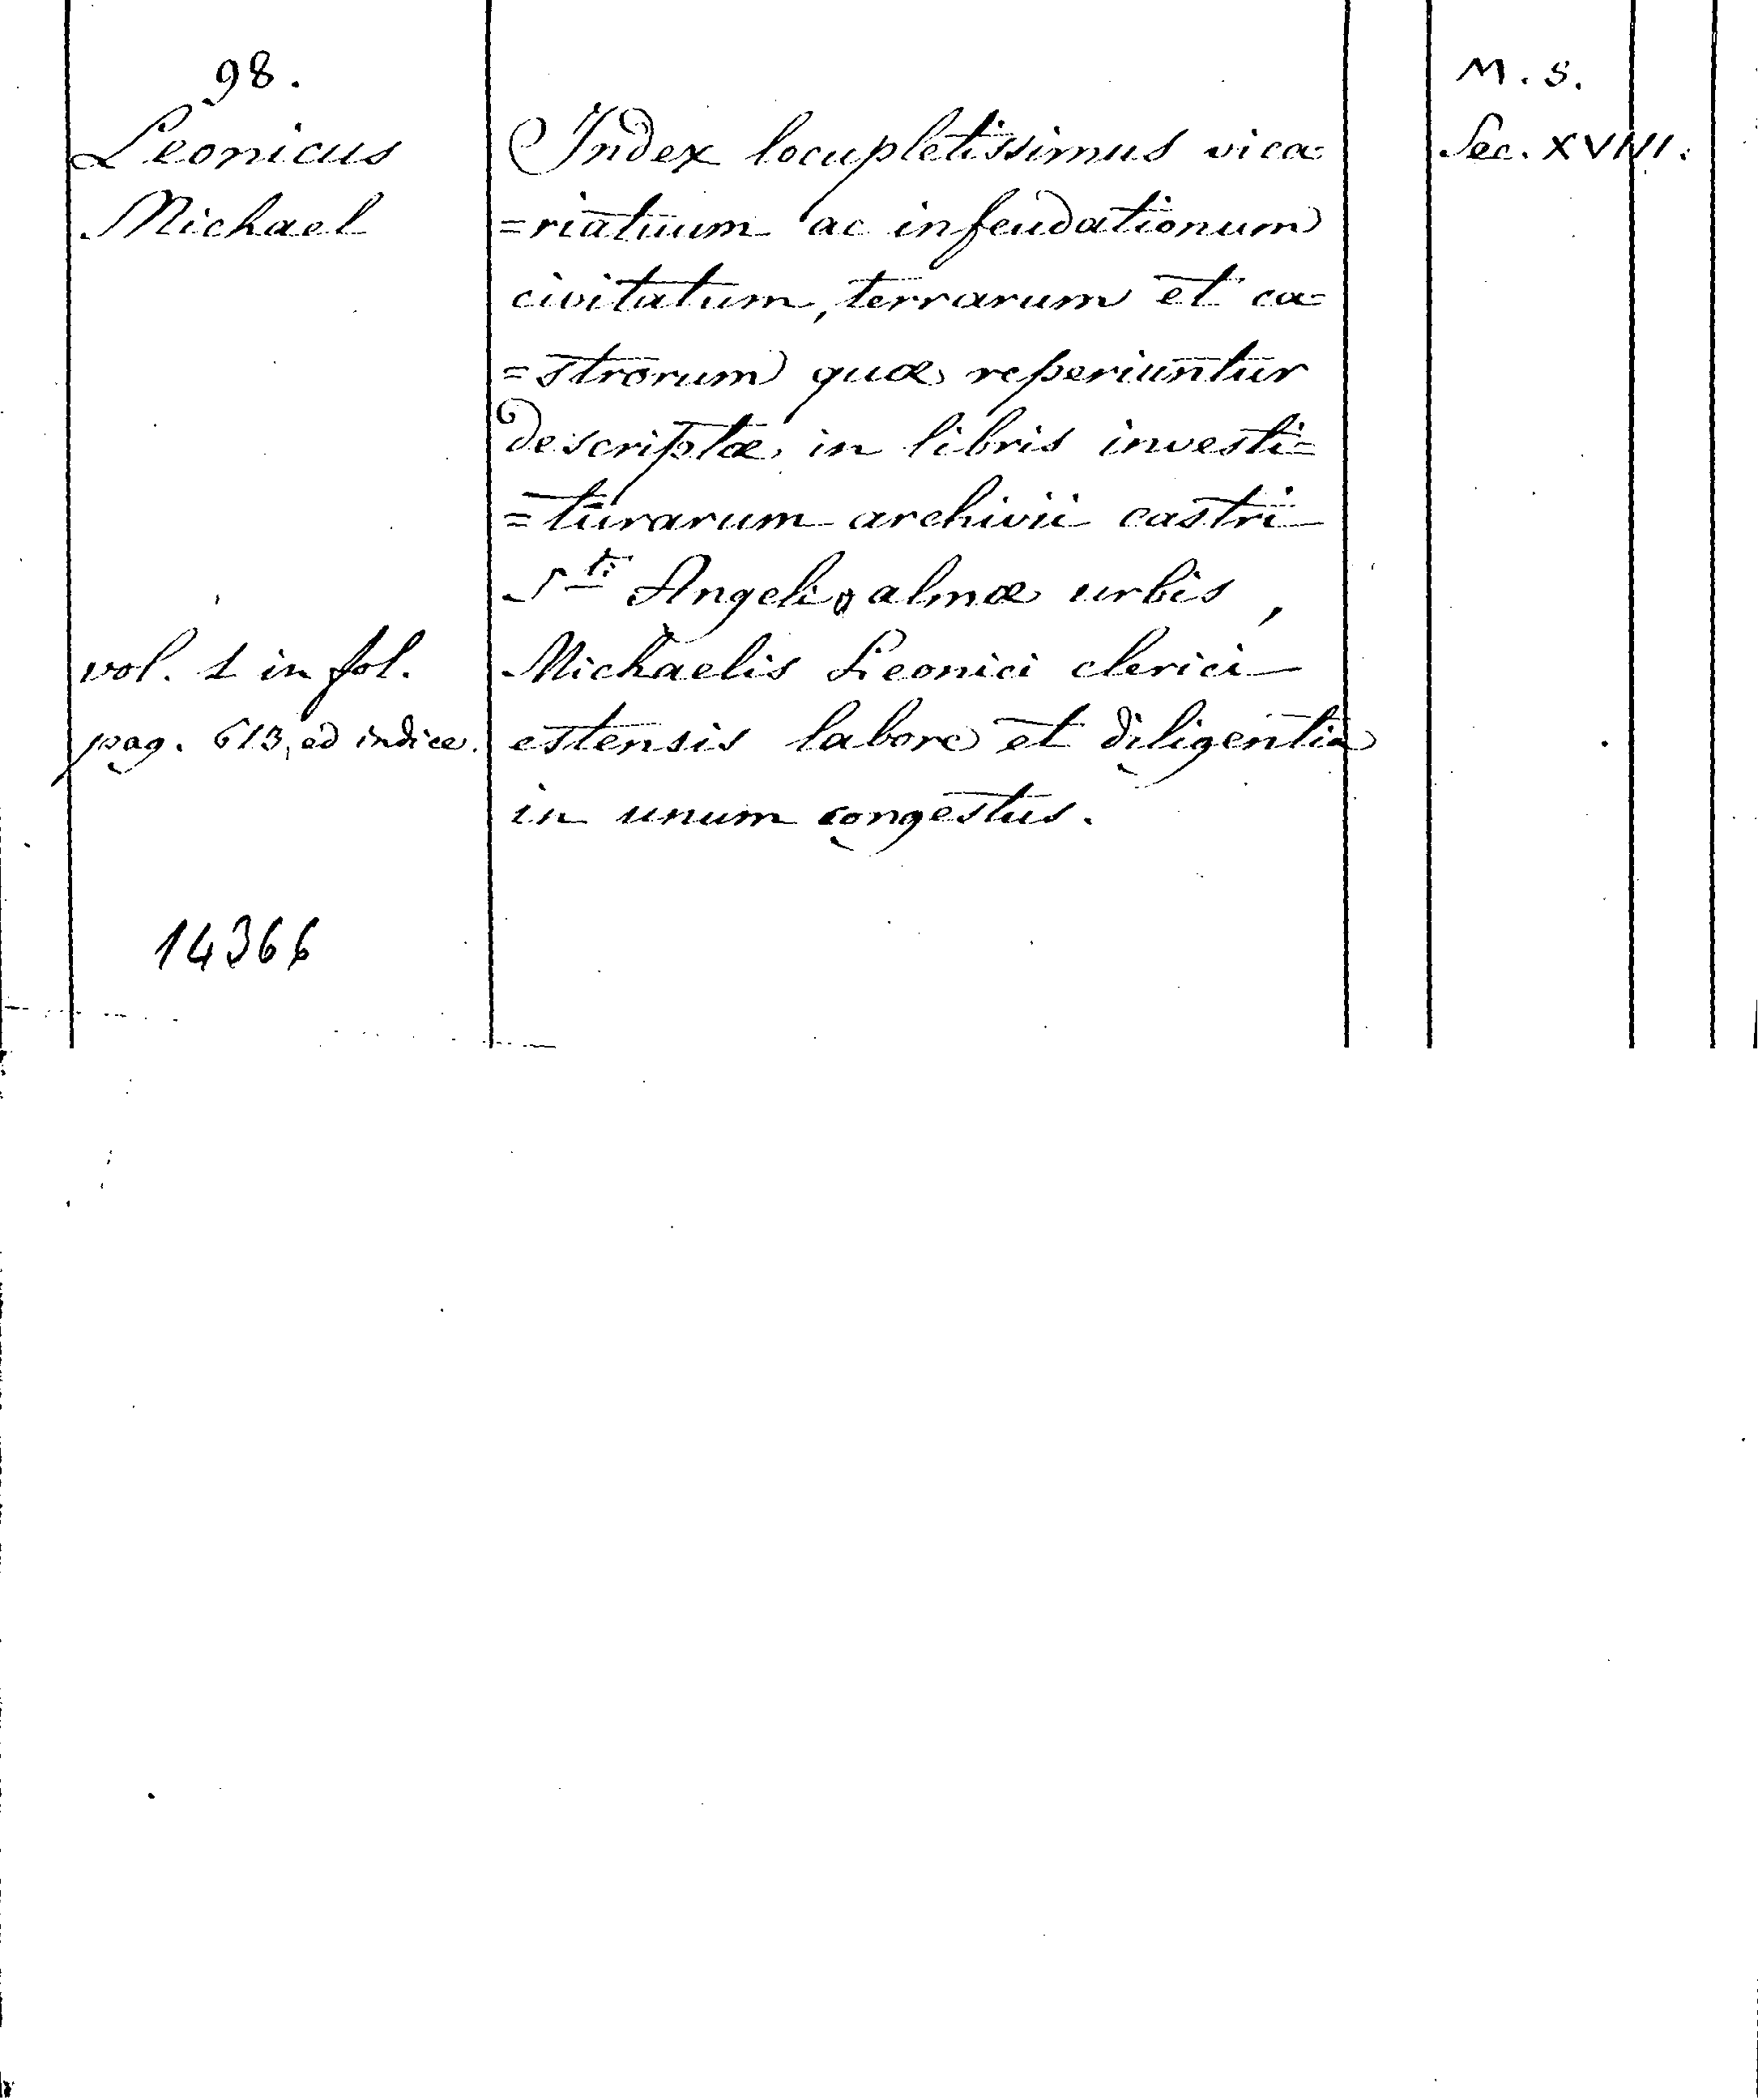 98.
Leonicus
Michael
vol. 1 in fol.
pag. 613, ed indice.
14366
Index locupletissimus vica=
=riatuum ac infeudationum
civitatum, terrarum et ca=
=strorum quæ reperiuntur
descriptæ in libris investi=
=turarum archivii castri
S.ti Angeli almæ urbis,
Michaelis Leonici clerici
estensis labore et diligentia
in unum congestus.
M. S.
Sec. XVIII.